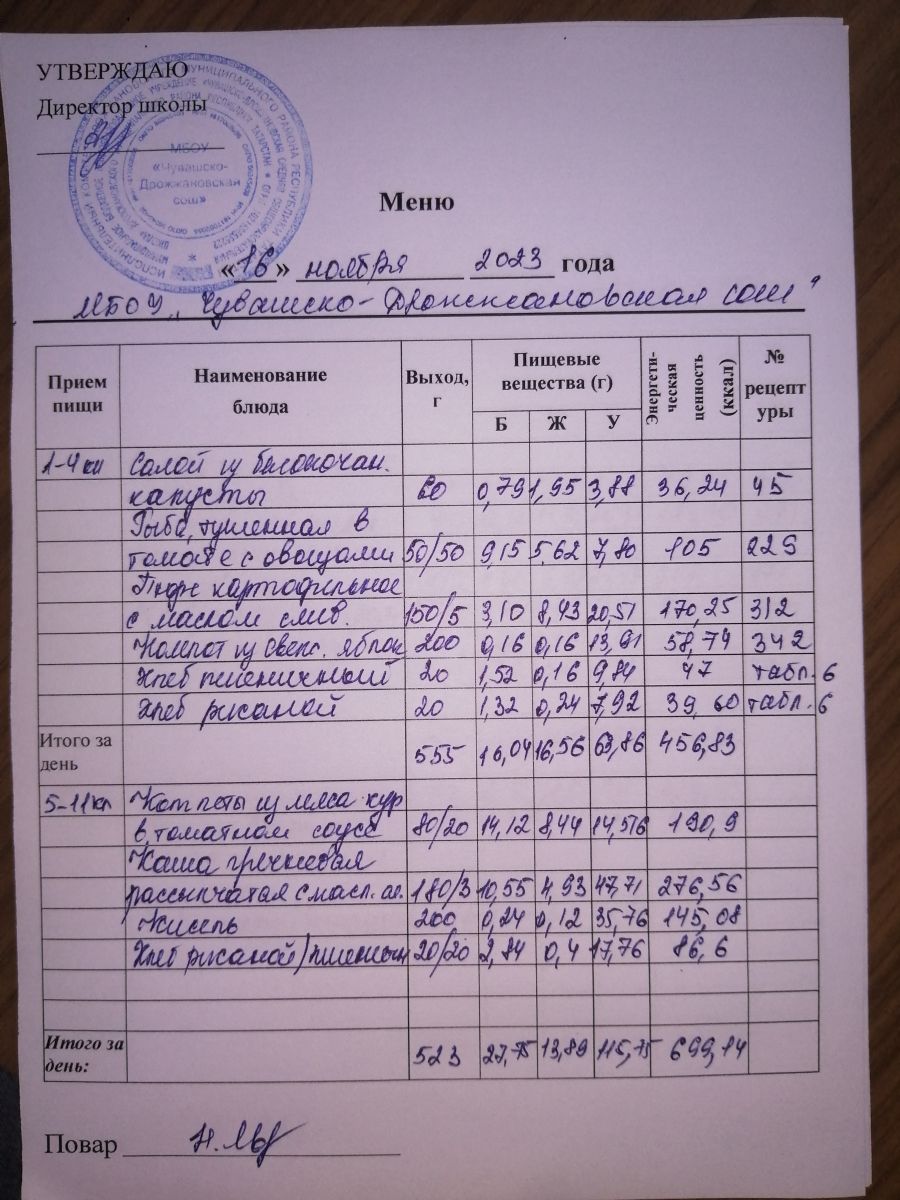 УТВЕРЖДАЮ
Директор школы
МБОУ
«Чувашско-
Дрожжановская
сош»
Меню
«16» ноября 2023 года
МБОУ „Чувашско-Дрожжановская сош"
Прием пищи Наименование блюда Выход, г Пищевые вещества (г) Энергети-ческая ценность (ккал) № рецептуры
Б Ж У
1-4 кл Салат из белокочан.
капусты 60 0,79 1,95 3,88 36,24 45
Рыба, тушенная в
томате с овощами 50/50 9,15 5,62 7,80 105 229
Пюре картофильное
с маслом слив. 150/5 3,10 8,43 20,51 170,25 312
Компот из свеж. яблок 200 0,16 0,16 13,91 58,74 342
Хлеб пшеничный 20 1,52 0,16 9,84 47 табл. 6
Хлеб ржаной 20 1,32 0,24 7,92 39,60 табл. 6
Итого за день 555 16,04 16,56 63,86 456,83
5-11 кл Котлеты из мяса кур
в томатном соусе 80/20 14,12 8,44 14,516 190,9
Каша гречневая
рассыпчатая с масл. сл. 180/3 10,55 4,93 47,71 276,56
Кисель 200 0,24 0,12 35,76 145,08
Хлеб ржаной/пшеничн 20/20 2,84 0,4 17,76 86,6
Итого за день: 523 27,75 13,89 115,75 699,14
Повар